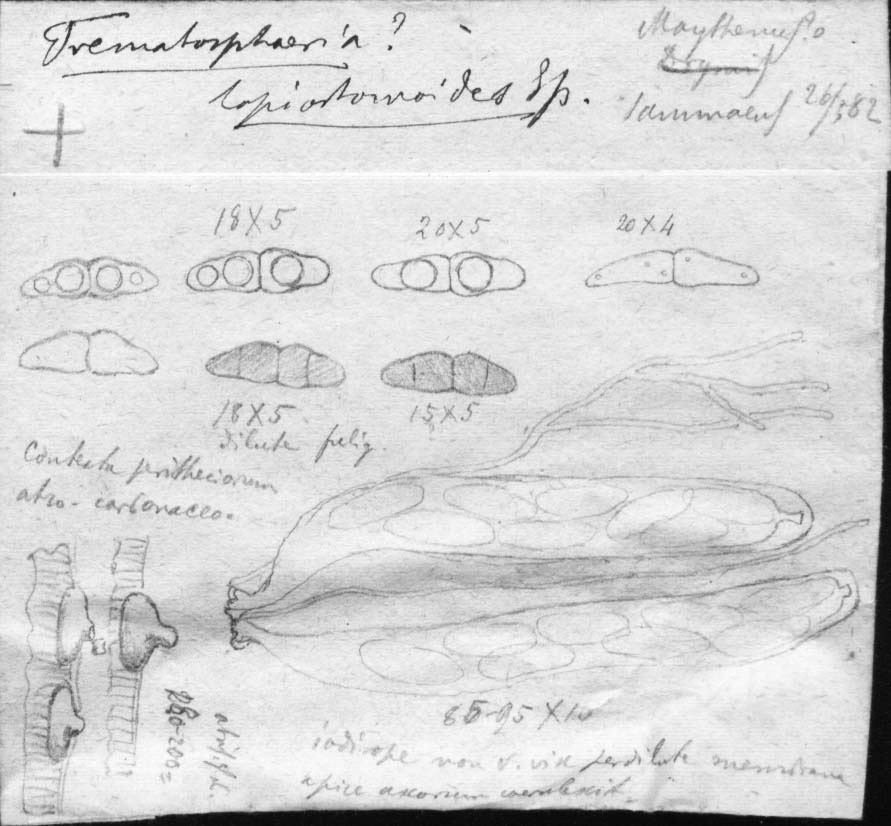 Trematosphaeria?
lopiostomoides Sp.
Maythenus
26/3 82
18X5
20x5
20X4
18X5
15X5
dilute fulig.
Contextu peritheciorum
atro-carbonaceo.
85-95 X 10
iodi ope non v. vix perdilute membrana
apice ascorum coerulescit